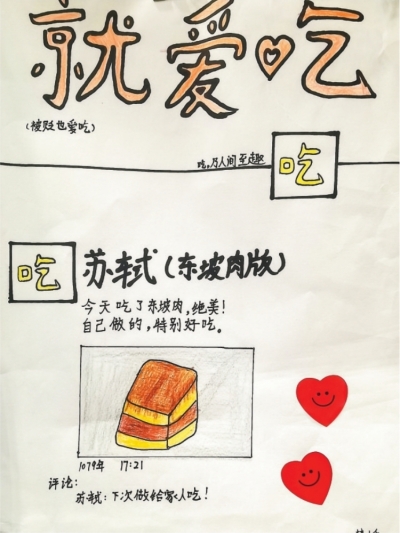 就爱吃
(被贬也爱吃)
吃,乃人间至趣
吃
吃
苏轼(东坡肉版)
今天吃了东坡肉,绝美!
自己做的,特别好吃。
1079年 17:21
评论:
苏轼:下次做给人吃!